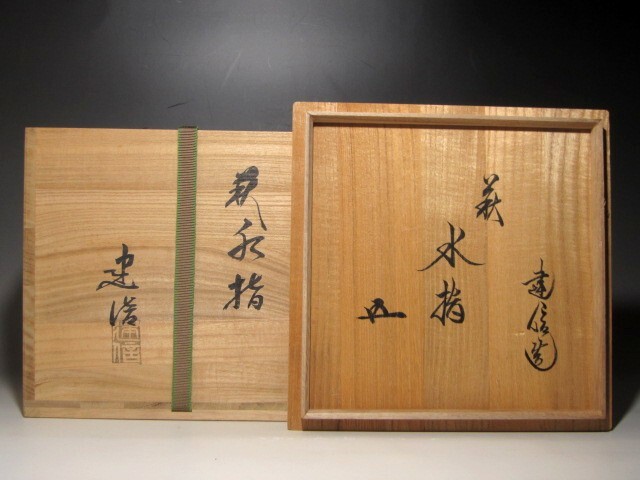 萩水指
建信
建信
萩
水指
建信造